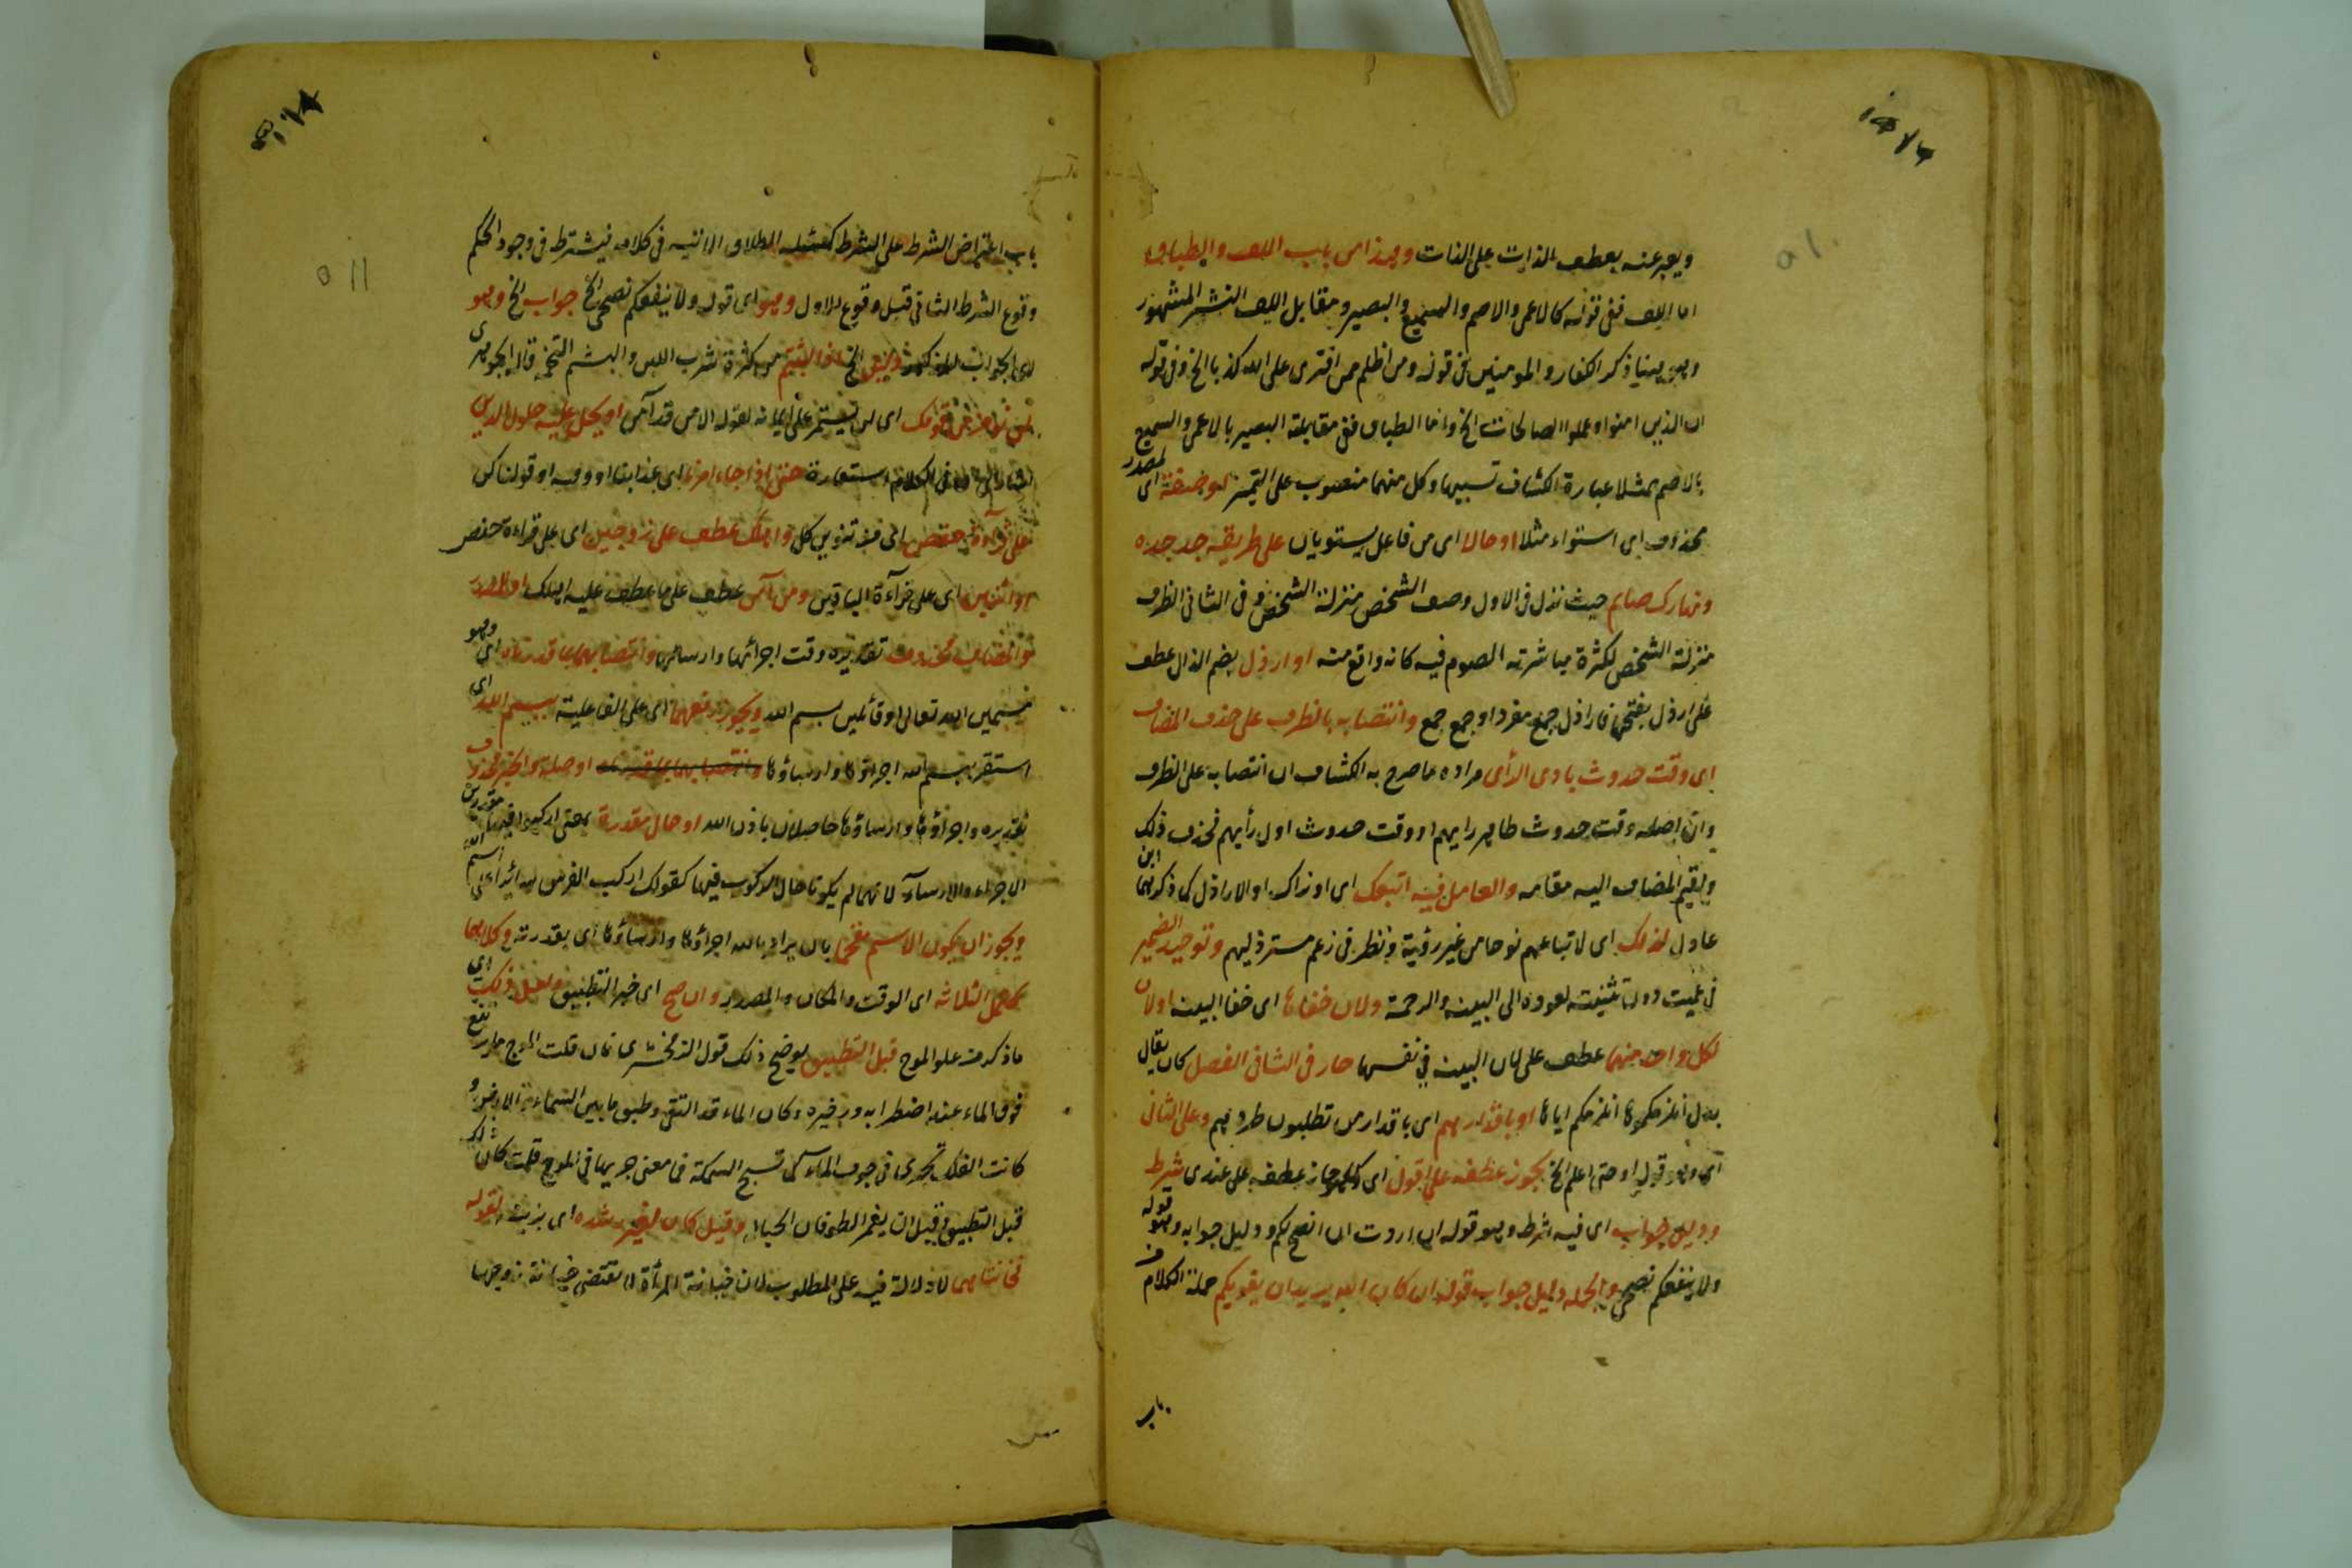 ويعبر عنه بعطف الذات على الذات وهذا من باب اللف والطباق
اما اللف ففي قوله كالاعمى والاصم والسميع والبصير ومقابل اللف النشر المشهور
وهو هنا ذكر الكفار والمومنين في قوله ومن اظلم ممن افترى على الله كذبا الخ وفي قوله
ان الذين امنوا وعملوا الصالحات الخ واما الطباق ففي مقابلة البصير بالاعمى والسميع
بالاصم مثلا عبارة الكشاف تشبيها وكل منهما منصوب على التميز او صفة اى لمصدر
محذوف اى استواء مثلا او حالا اى من فاعل يستويان على طريقة جد جده
ونهارك صايم حيث نزل في الاول وصف الشخص منزلة الشخص وفي الثاني الظرف
منزلة الشخص لكثرة مباشرته الصوم فيه كانه واقع منه او ارذل بضم الذال عطف
على ارذل بفتحها فاراذل جمع مفرد او جمع جمع وانتصابه بالظرف على حذف المضاف
اى وقت حدوث بادى الرأى مراده ما صرح به الكشاف ان انتصابه على الظرف
وان اصله وقت حدوث ظاهر رايهم او وقت حدوث اول رأيهم فحذف ذلك
واقيم المضاف اليه مقامه والعامل فيه اتبعك اى او نراك او الاراذل كما ذكرهما ابن
عادل لذلك اى لاتباعهم نوحا من غير رؤية ونظر في زعم مسترذليهم وتوحيد الضمير
في عميت دون تثنيته لعوده الى البينة والرحمة ولان خفاها اى خفا البينة اولان
لكل واحد منهما عطف على لان البينة في نفسها جار في الثاني الفصل كان يقال
بدل انلزمكموها انلزمكم اياها او باقدارهم اى باقدار من تطلبون طردهم وعلى الثاني
اى وهو قوله او حتى اعلم الخ يجوز عطفه على اقول اى كما جاز عطفه على عندى شرط
ودليل جواب اى فيه شرط وهو قوله ان اردت ان انصح لكم ودليل جوابه وهو قوله
ولا ينفعكم نصحى والجملة دليل جواب قوله ان كان الله يريد ان يغويكم جملة الكلام
باب
باب اعتراض الشرط على الشرط الطلاق في كلامه فيشترط في وجود الحكم
وقوع الشرط الثاني قبل وقوع الاول وهو اى قوله ولا ينفعكم نصحى الخ جواب الخ وهو
من كثرة شرب اللبن والبشم التخمة قاله الجوهرى
لن يؤمن من قومك اى لن يستمر على ايمانه لقوله الا من قد آمن او يحل عليه حلول الدين
في الكلام استعارة حتى اذا جاء امرنا اى عذابنا او وقته او قولنا كن
على قرآءة حفص اى مع تنوين كل واهلك عطف على زوجين اى على قراءة حفص
او اثنين اى على قرآءة الباقين ومن آمن عطف على ما عطف عليه اهلك او المصدر
والمضاف محذوف تقديره وقت اجرائها وارسائها وانتصابهما بما قدرناه اى وهو
مسمين الله تعالى او قائلين بسم الله ويجوز رفعهما اى على الفاعلية ببسم الله اى
استقر بسم الله اجراؤها وارساؤها وانتصابهما بما قدرناه او صلة والخبر محذوف
تقديره واجراؤها وارساؤها حاصلان باذن الله او حال مقدرة بمعنى اركبوا فيها مقدرين
الاجراء والارسآء لانهما لم يكونا حال الركوب فيها كقولك اركب الفرس
ويجوز ان يكون الاسم مقحما بان يراد بالله اجراؤها وارساؤها اى بقدرته وكلاهما
يحتمل الثلاثة اى الوقت والمكان والمصدر وان صح اى خبر التطبيق فلعل ذلك اى
ما ذكر من علو الموج قبل التطبيق يوضح ذلك قول الزمخشرى فان قلت الموج ما يرتفع
فوق الماء عند اضطرابه وزخيره وكان الماء قد التقى وطبق ما بين السماء والارض و
كانت الفلك تجرى في جوف الماء كما تسبح السمكة فما معنى جريها في الموج قلت كان ذلك
قبل التطبيق وقبل ان يغمر الطوفان الجبال وقيل كان لغير رشده اى بزنية لقوله
فخانتاهما لا دلالة فيه على المطلوب لان خيانة المرأة لا تقتضى خيانة زوجها